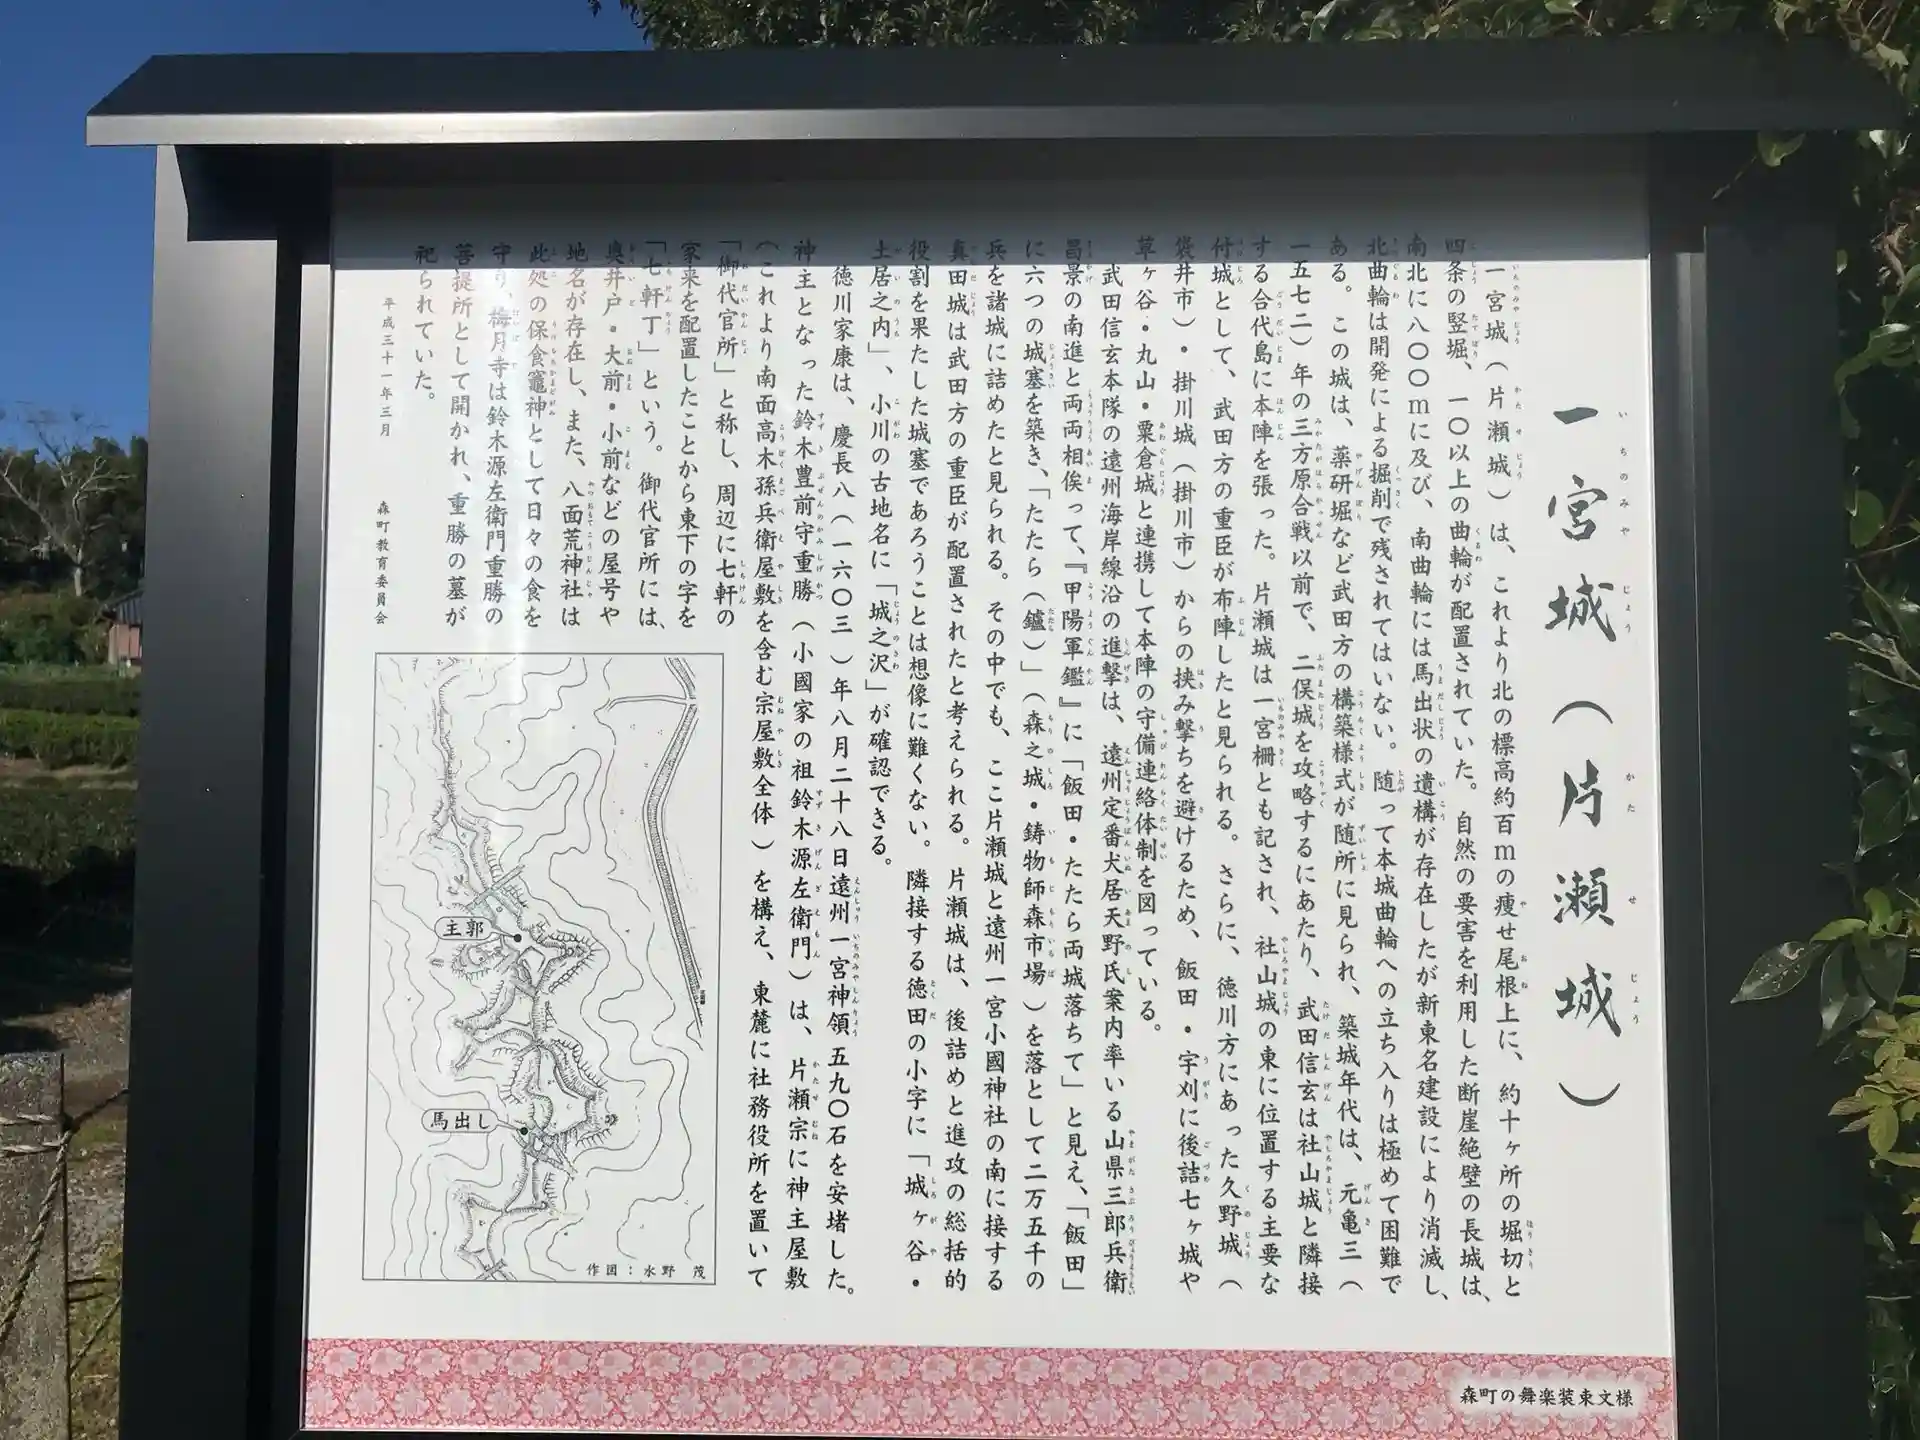 一宮城(片瀬城)
一宮城(片瀬城)は、これより北の標高約百mの痩せ尾根上に、約十ヶ所の堀切と
四条の竪堀、一〇以上の曲輪が配置されていた。自然の要害を利用した断崖絶壁の長城は、
南北に八〇〇mに及び、南曲輪には馬出状の遺構が存在したが新東名建設により消滅し、
北曲輪は開発による掘削で残されてはいない。随って本城曲輪への立ち入りは極めて困難で
ある。この城は、薬研堀など武田方の構築様式が随所に見られ、築城年代は、元亀三(
一五七二)年の三方原合戦以前で、二俣城を攻略するにあたり、武田信玄は社山城と隣接
する合代島に本陣を張った。片瀬城は一宮柵とも記され、社山城の東に位置する主要な
付城として、武田方の重臣が布陣したと見られる。さらに、徳川方にあった久野城(
袋井市)・掛川城(掛川市)からの挟み撃ちを避けるため、飯田・宇刈に後詰七ヶ城や
草ヶ谷・丸山・粟倉城と連携して本陣の守備連絡体制を図っている。
武田信玄本隊の遠州海岸線沿の進撃は、遠州定番犬居天野氏案内率いる山県三郎兵衛
昌景の南進と両両相俟って、『甲陽軍鑑』に「飯田・たたら両城落ちて」と見え、「飯田」
に六つの城塞を築き、「たたら(鑪)」(森之城・鋳物師森市場)を落として二万五千の
兵を諸城に詰めたと見られる。その中でも、ここ片瀬城と遠州一宮小國神社の南に接する
真田城は武田方の重臣が配置されたと考えられる。片瀬城は、後詰めと進攻の総括的
役割を果たした城塞であろうことは想像に難くない。隣接する徳田の小字に「城ヶ谷・
土居之内」、小川の古地名に「城之沢」が確認できる。
徳川家康は、慶長八(一六〇三)年八月二十八日遠州一宮神領五九〇石を安堵した。
神主となった鈴木豊前守重勝(小國家の祖鈴木源左衛門)は、片瀬宗に神主屋敷
(これより南面高木孫兵衛屋敷を含む宗屋敷全体)を構え、東麓に社務役所を置いて
「御代官所」と称し、周辺に七軒の
家来を配置したことから東下の字を
「七軒丁」という。御代官所には、
奥井戸・大前・小前などの屋号や
地名が存在し、また、八面荒神社は
此処の保食竈神として日々の食を
守り、梅月寺は鈴木源左衛門重勝の
菩提所として開かれ、重勝の墓が
祀られていた。
平成三十一年三月 森町教育委員会
主郭
馬出し
作図:水野 茂
森町の舞楽装束文様